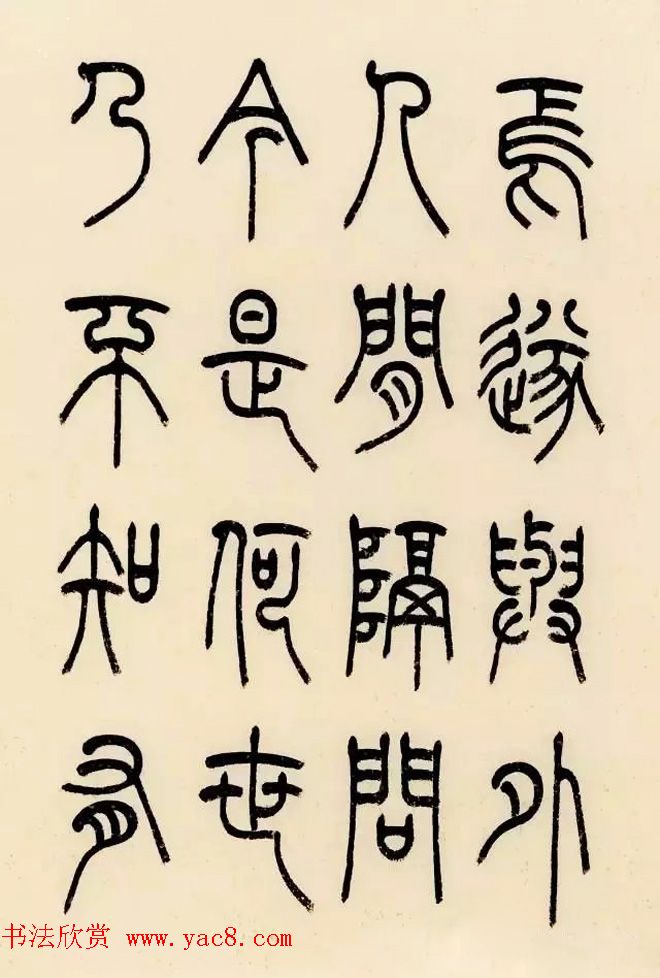 焉遂與外
人間隔問
今是何世
乃不知有
书法欣赏 www.yac8.com